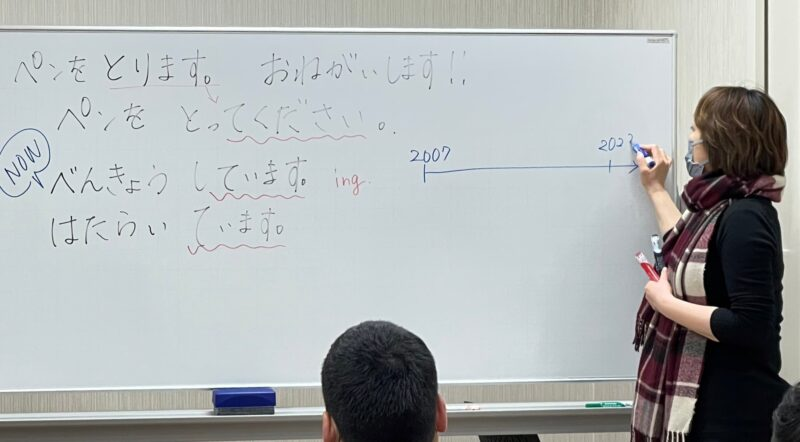 ペンを とります。 おねがいします!!
ペンを とってください。
NOW
べんきょう しています。 ing.
はたらい ています。
2007
2023